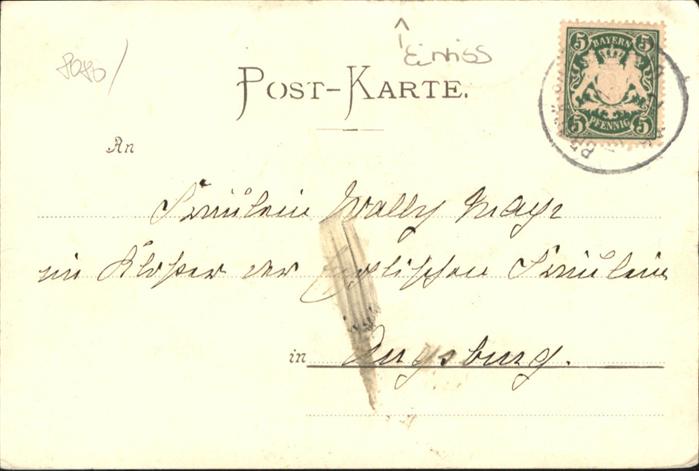 Einriss
8080/
POST-KARTE.
5 BAYERN 5
5 PFENNIG 5
An
Fräulein Wally Mayr
im Kloster der Englischen Fräulein
in Augsburg.